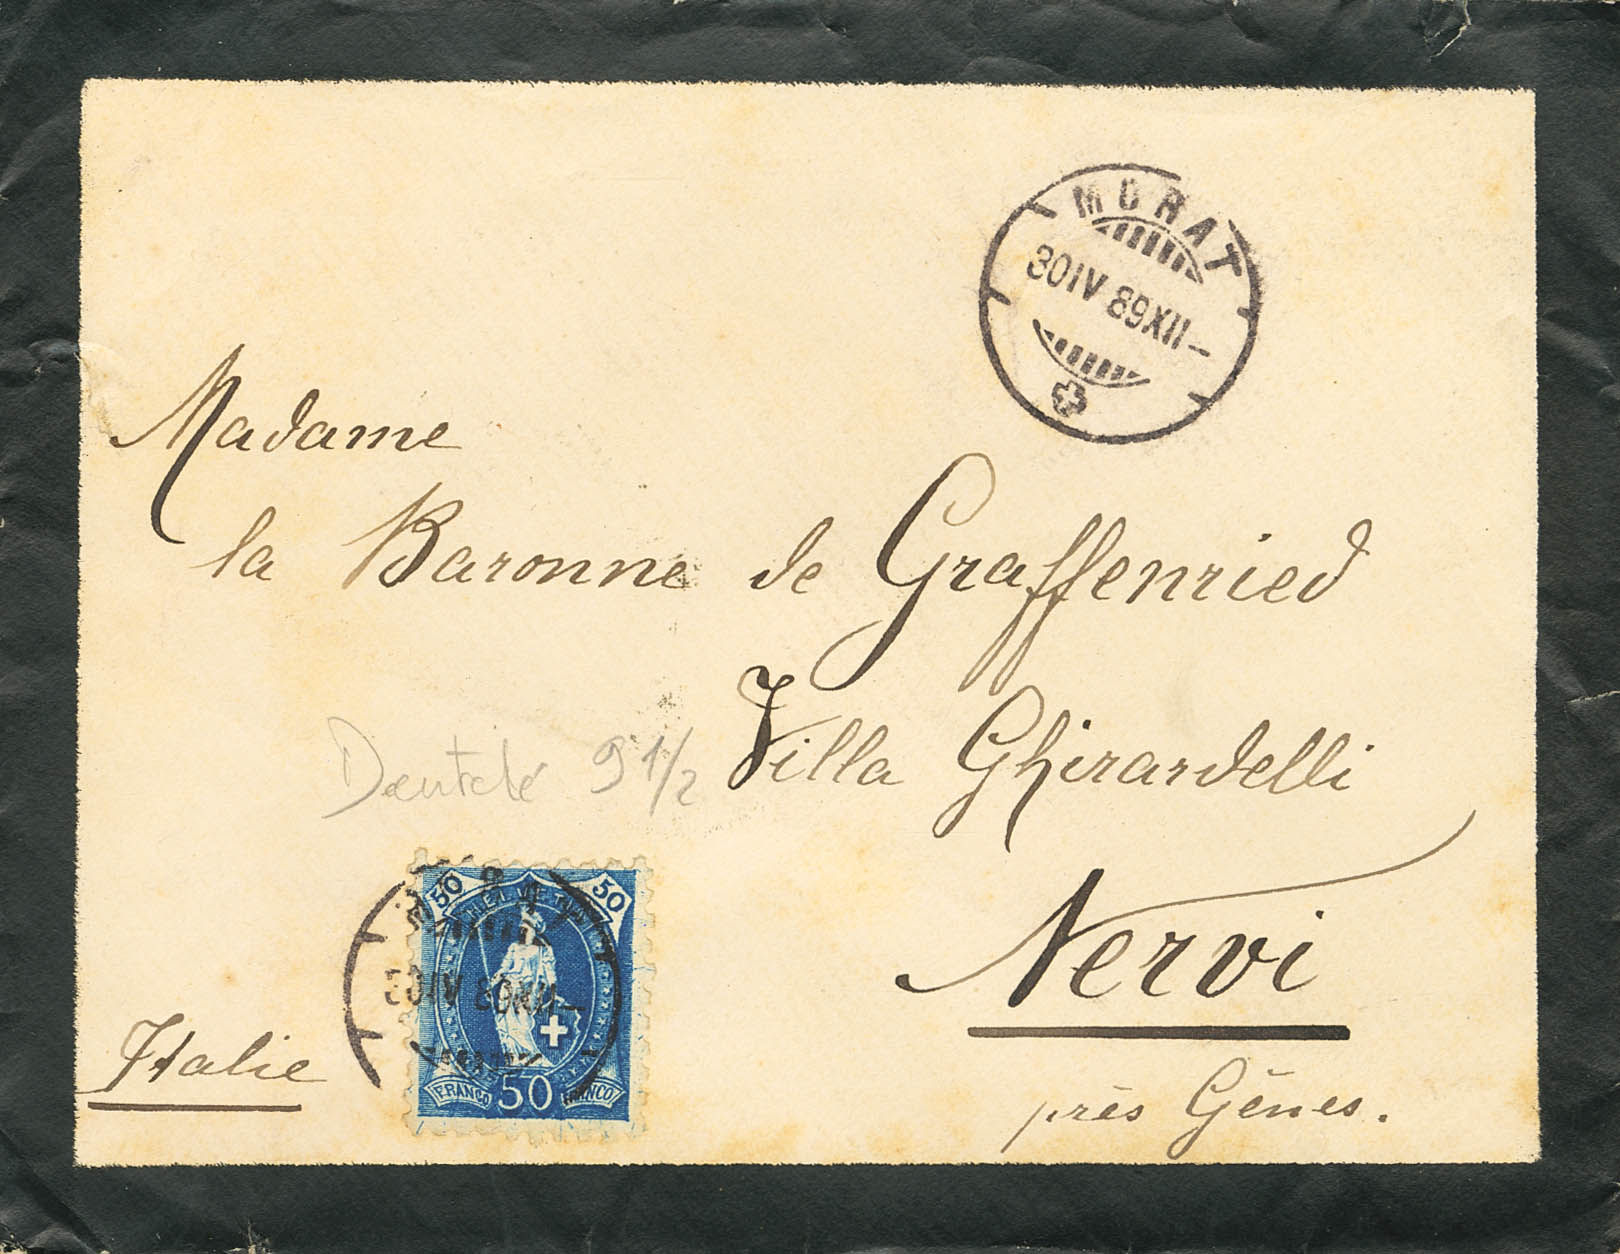 MORAT
30 IV 89 XII–
Madame
la Baronne de Graffenried
Dentelé 9 1/2
Villa Ghirardelli
Nervi
près Gênes.
Italie
50 50
HELVETIA
30 IV 89 XII–
FRANCO 50 FRANCO